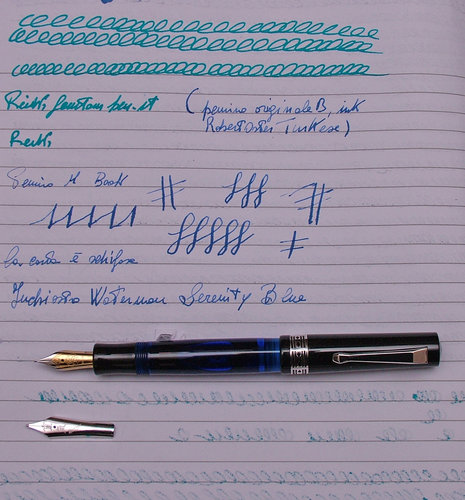 fountainpen.it (pennino originale B, ink
Robert Oster Turkese)
Pennino M Bock
La carta è schifosa
Inchiostro Waterman Serenity Blue